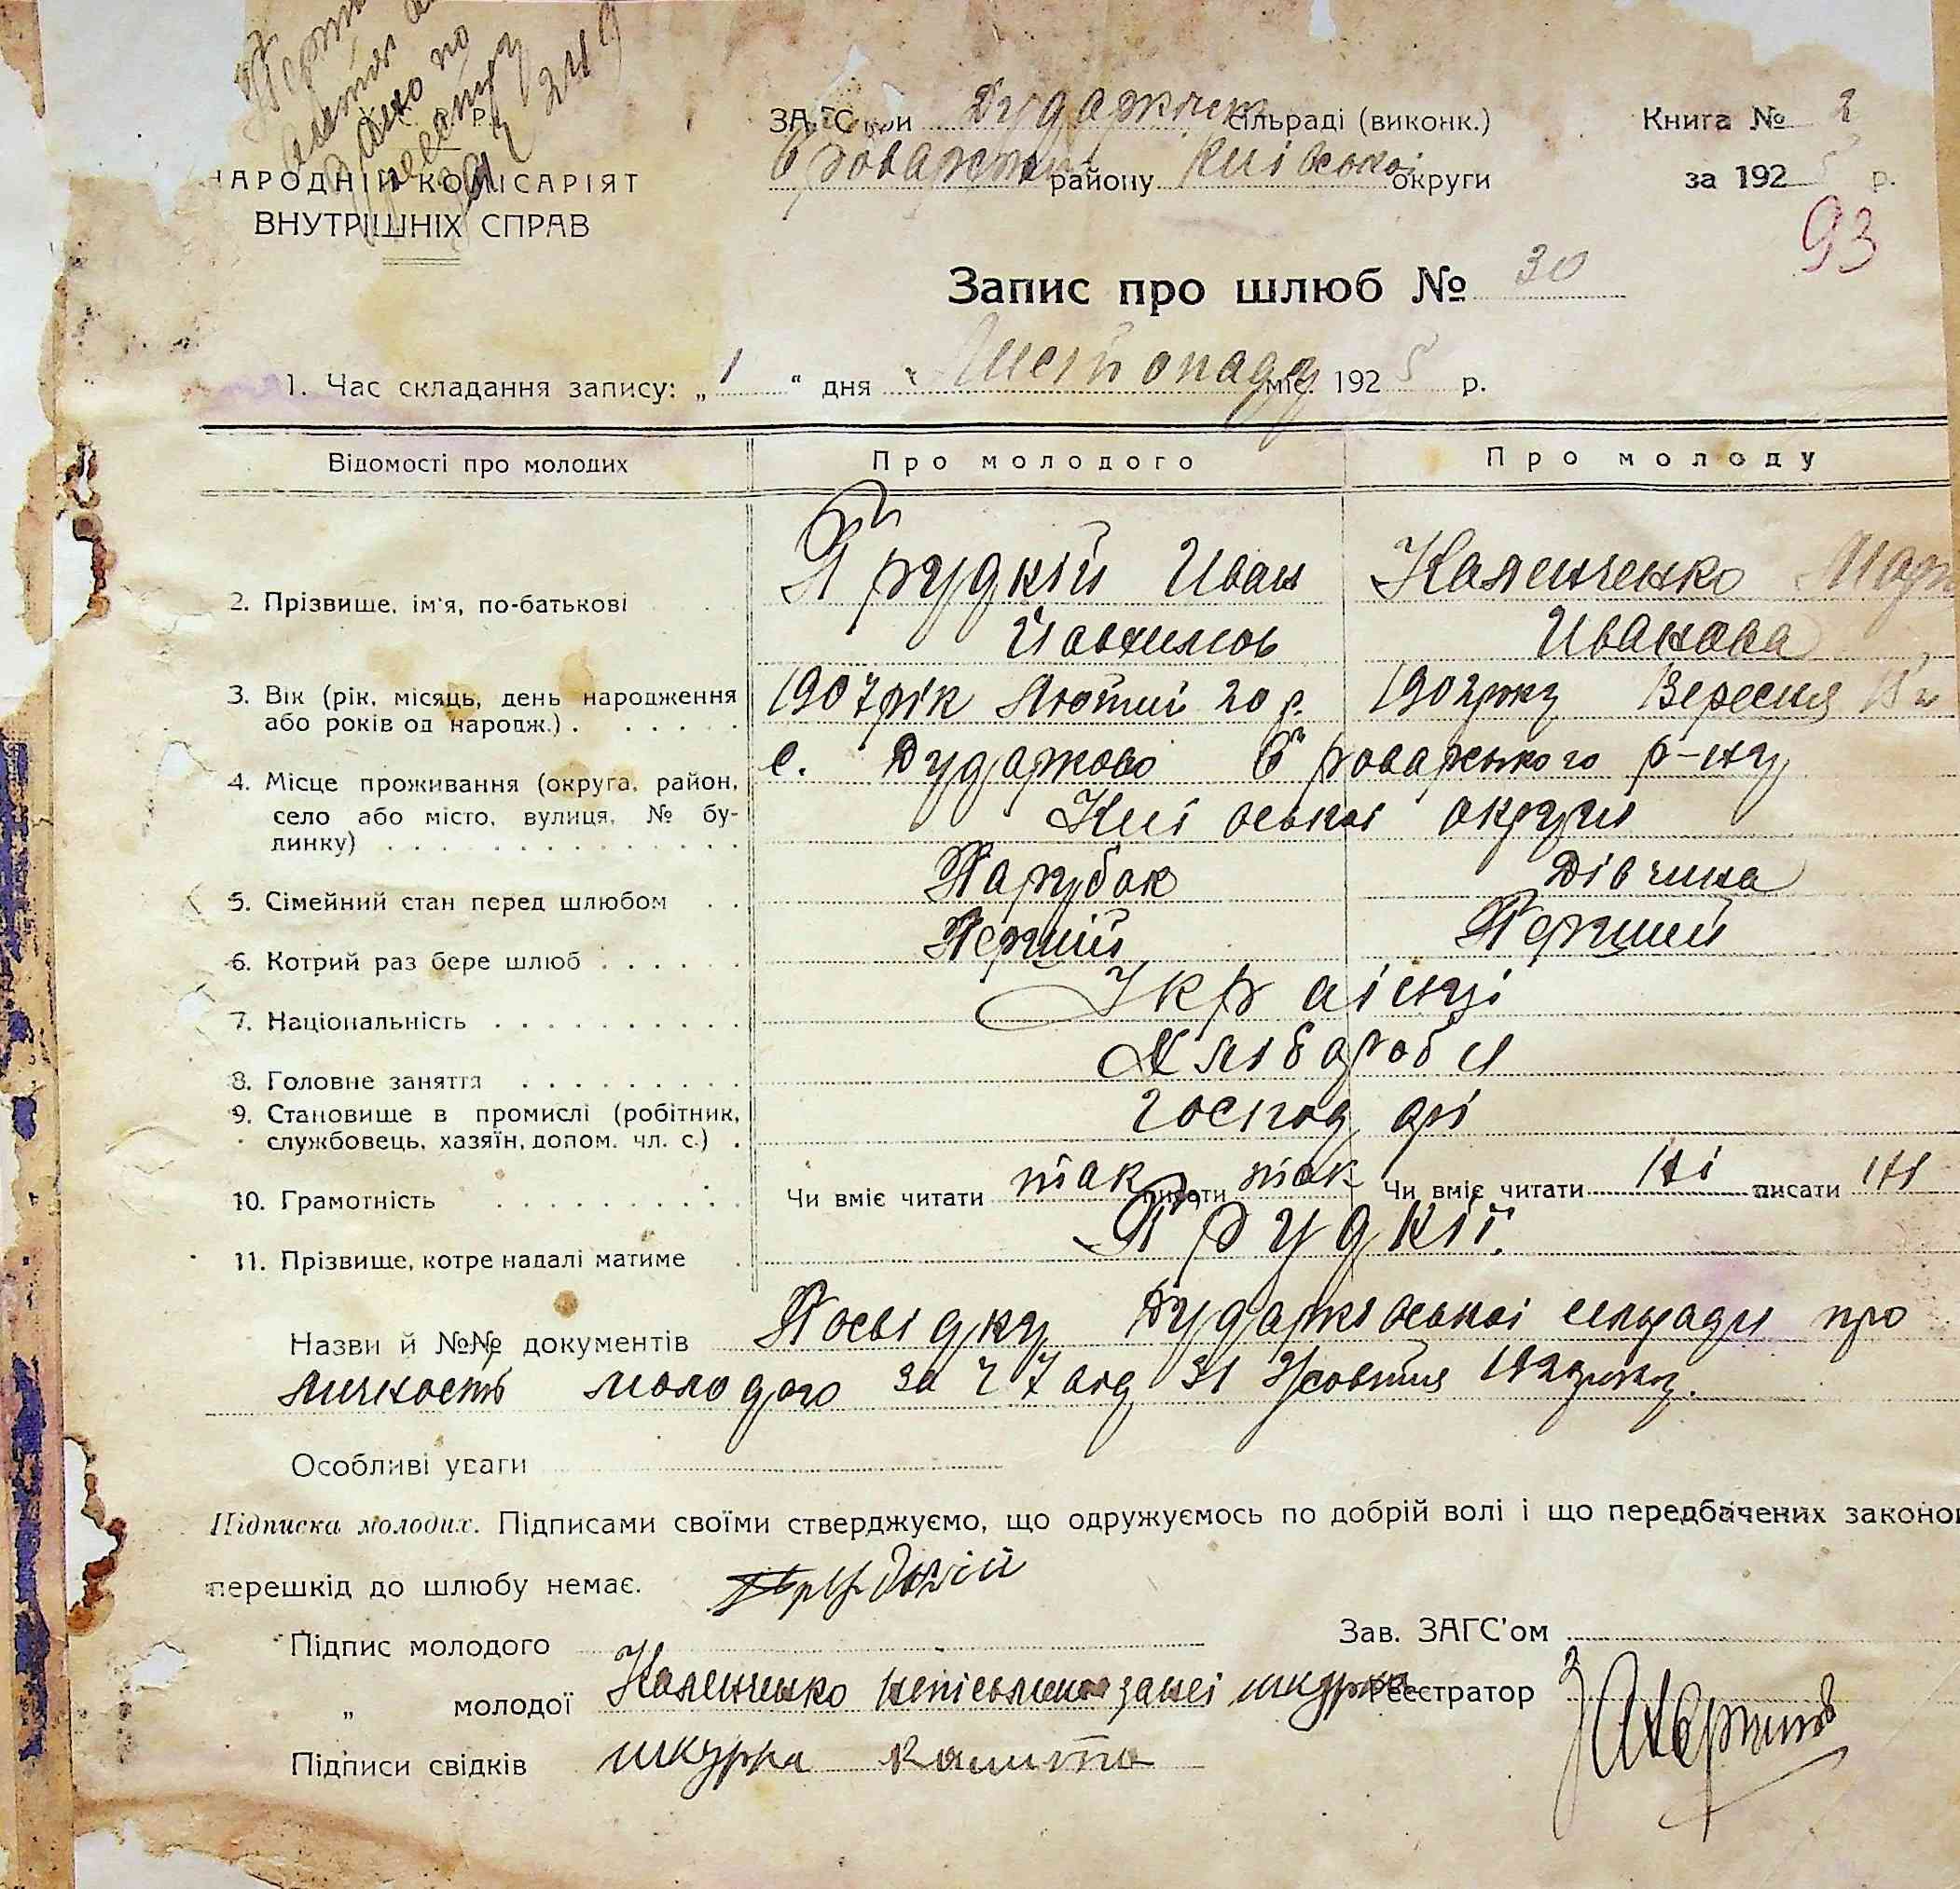 Р.
НАРОДНІЙ КОМІСАРІЯТ
ВНУТРІШНІХ СПРАВ
ЗАГС при Дударківск сільраді (виконк.)
Броварськ району Київської округи
Книга № 2
за 1925 р.
93
Запис про шлюб № 30
1. Час складання запису: „ 1 “ дня Листопаду міс. 1925 р.
Відомості про молодих
Про молодого
Про молоду
2. Прізвище, ім'я, по-батькові
Прудкій Иван
Каленченко Мар
Иванова
3. Вік (рік, місяць, день народження
або років од народж.)
1907 рік Лютий 20 р.
1902 року Вересня 15
4. Місце проживання (округа, район,
село або місто, вулиця, № бу-
динку)
с. Дударково Броварського р-ну
Київоської округи
5. Сімейний стан перед шлюбом
Парубок
Дівчина
6. Котрий раз бере шлюб
Перший
Перший
7. Національність
Українці
8. Головне заняття
Хлібороби
9. Становище в промислі (робітник,
службовець, хазяїн, допом. чл. с.)
Господарі
10. Грамотність
Чи вміє читати так писати так
Чи вміє читати Ні писати Ні
11. Прізвище, котре надалі матиме
Прудкії.
Назви й №№ документів Посвідку Дударківської сільради про
личность молодого за № 7 від 31 Жовтня 192 року.
Особливі уваги
Підписка молодих. Підписами своїми стверджуємо, що одружуємось по добрій волі і що передбачених законом
перешкід до шлюбу немає.
Підпис молодого Прудкій
Зав. ЗАГС'ом
„ молодої Каленченко непісьмена занеї шкурка
Реєстратор
Підписи свідків шкурка